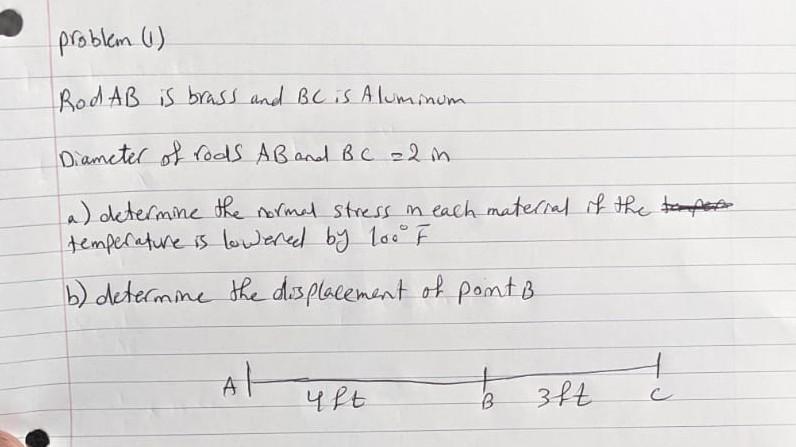 problem (1)
Rod AB is brass and BC is Aluminum
Diameter of rods AB and BC = 2 in
a) determine the normal stress in each material if the
temperature is lowered by 100° F
b) determine the displacement of point B
A 4ft B 3ft C